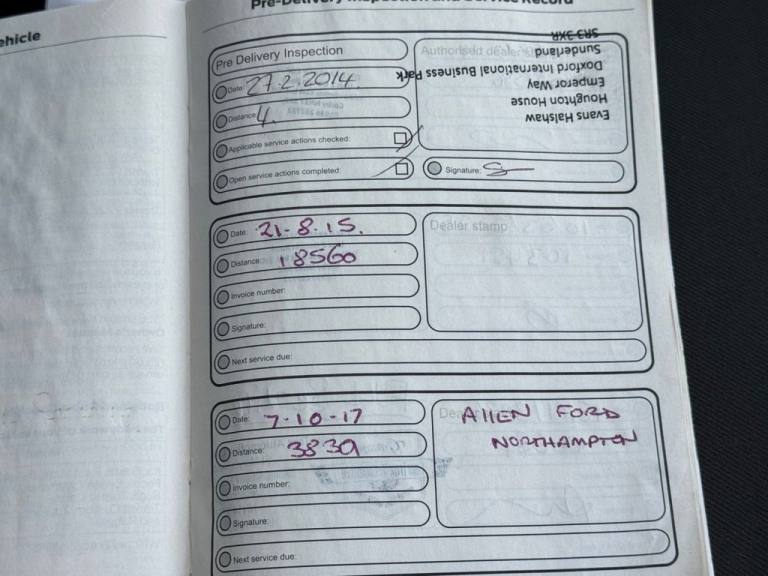 ehicle
Pre-Delivery Inspection and Service Record
Pre Delivery Inspection
Date: 27.2.2014.
Distance: 4.
Applicable service actions checked:
Open service actions completed:
Authorised dealer
Evans Halshaw
Houghton House
Emperor Way
Doxford International Business Park
Sunderland
SR3 3XR
Signature:
Date: 21-8-15.
Distance: 18560
Invoice number:
Signature:
Next service due:
Dealer stamp
Date: 7-10-17
Distance: 3839
Invoice number:
Signature:
Next service due:
Dea
AllEN FORD
NORTHAMPTON